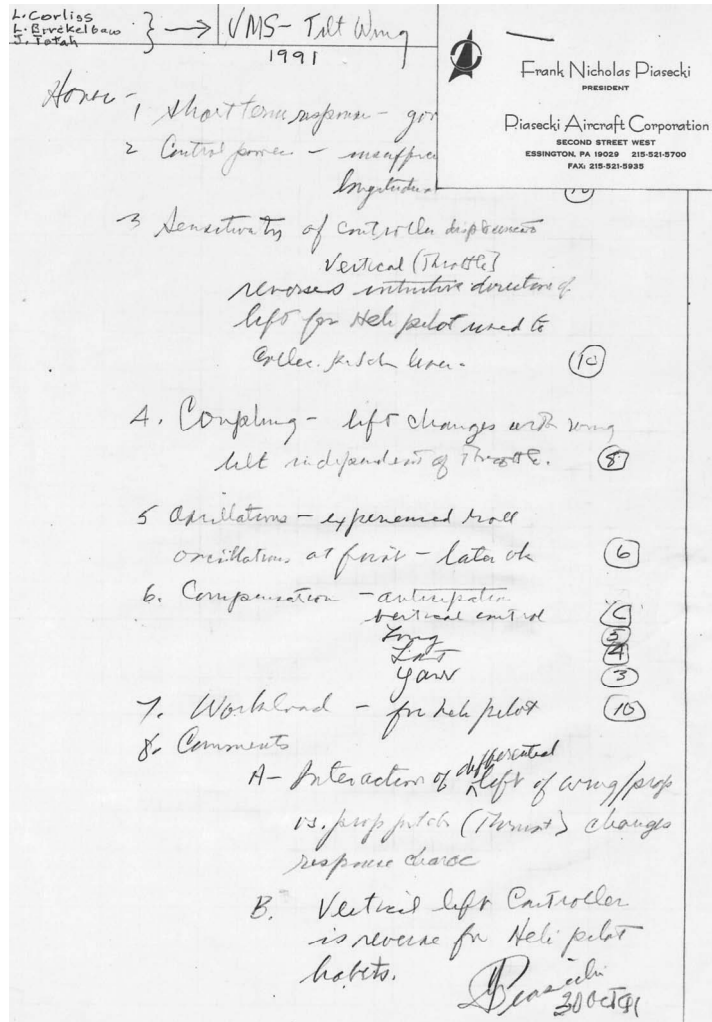 L. Corliss
L. Birckelbaw
J. Totah
VMS - Tilt Wing
1991
Frank Nicholas Piasecki
PRESIDENT
Piasecki Aircraft Corporation
SECOND STREET WEST
ESSINGTON, PA 19029 215-521-5700
FAX: 215-521-5935
Hover -
1 Short term response -
2 Control power -
longitudinal
3 Sensitivity of controller displacements
Vertical (Throttle)
reverses intuitive direction of
lift for Heli pilot used to
Collec. pitch lever. 10
4. Coupling - lift changes with wing
tilt independent of Throttle. 8
5 Oscillations - experienced roll
oscillations at first - later ok 6
6. Compensation - anticipation
vertical control
Long 5
Lat 4
Yaw 3
7. Workload - for heli pilot 10
8. Comments
A - Interaction of differential lift of wing/prop
vs. prop pitch (Thrust) changes
response charac
B. Vertical lift Controller
is reverse for Heli pilot
habits.
Piasecki
30 Oct 91